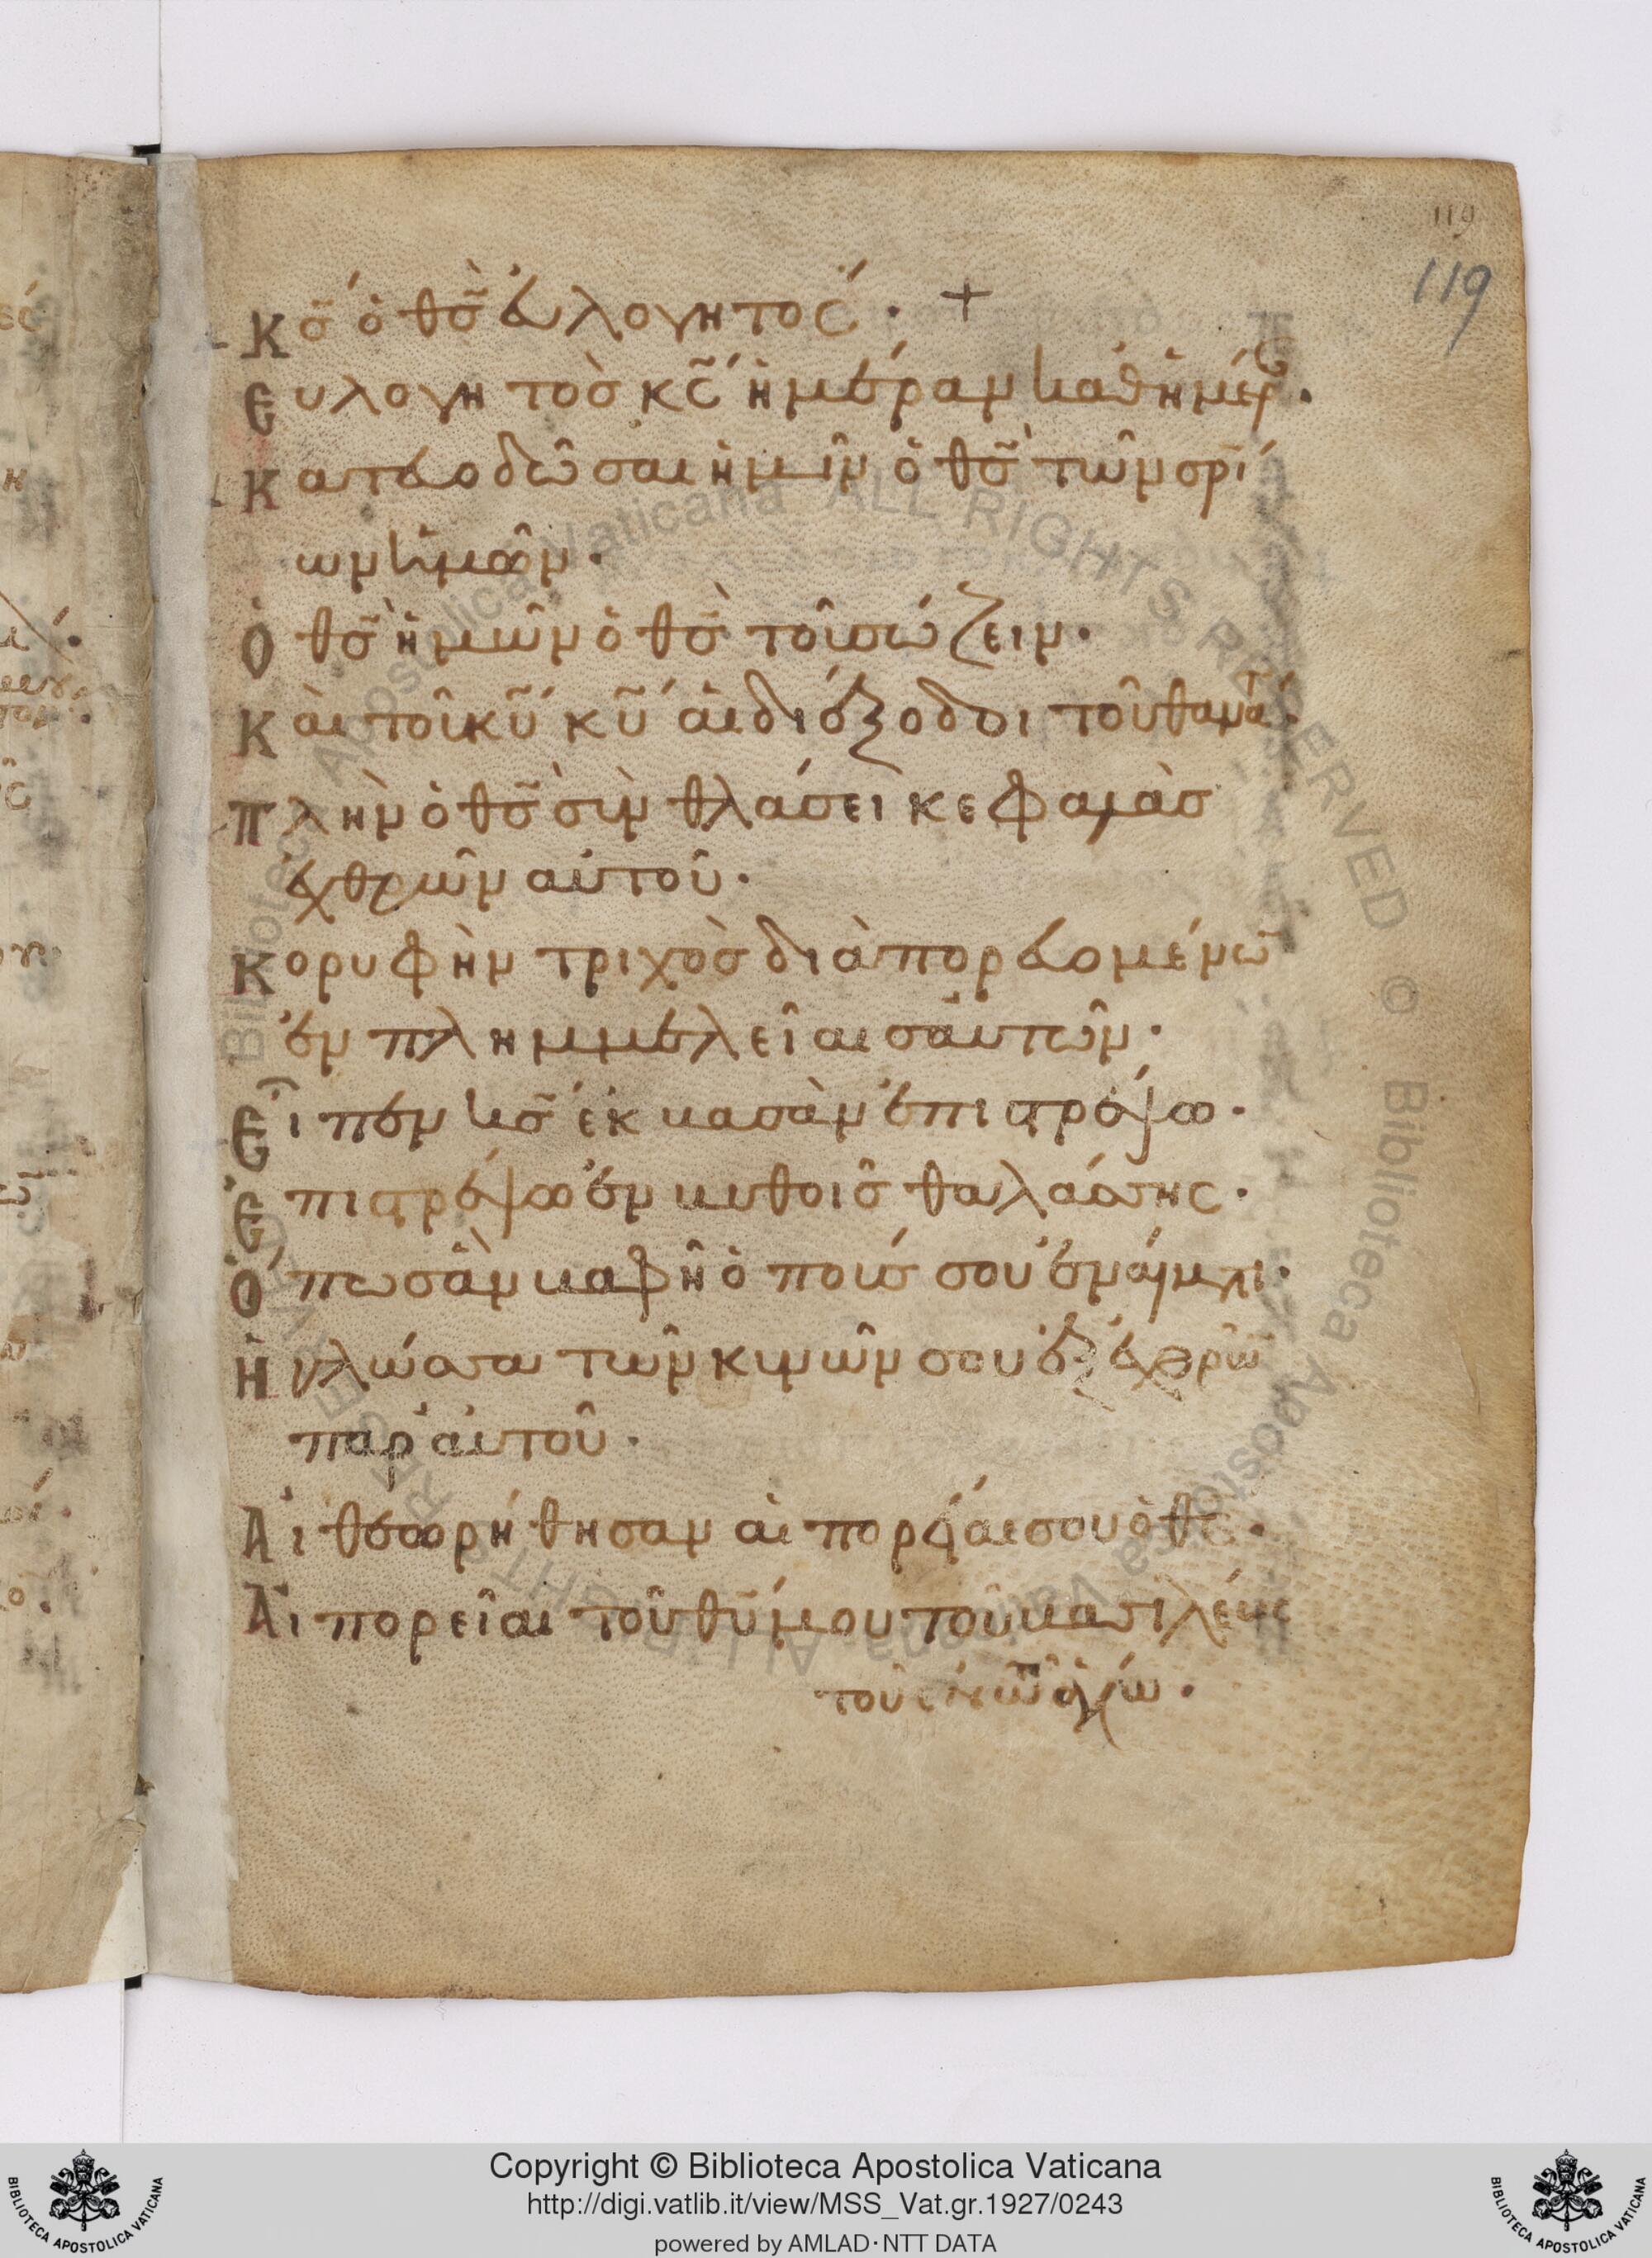 119
119
κ̅σ̅ ὁ θ̅σ̅ ἐυλογητός · +
Ευλογητὸσ κ̅ς̅ ἡμέραν καθ ἡμέρ .
Κατευοδῶσαι ἡμῖν ὁ θ̅σ̅ τῶν σρι
ων ἡμῶν .
Ὁ θ̅σ̅ ἡμῶν ὁ θ̅σ̅ τοῦ σώζειν .
Κὰι τοῦ κ̅υ̅ κ̅υ̅ ἁι διέξοδοι τοῦ θανάτ .
Πλὴν ὁ θ̅σ̅ συν θλάσει κεφαλὰσ
ἐχθρῶν αὐτοῦ .
Κορυφὴν τριχὸσ διαπορευομένω
ἐν πλημμελείαισ ἀυτῶν .
Εἶπεν κ̅σ̅ ἐκ βασὰν ἐπιστρέψω .
Ἐπιστρέψω ἐν βυθοῖσ θαλάσσης .
Ὅπωσ ἂν βαφῆ ὁ ποῦσ σου ἐν ἅιματι .
Ἡ γλώσσα τῶν κυνῶν σου ἐξ ἐχθρῶ
παρ ἀυτοῦ .
Ἀιθεωρήθησαν αἱ πορεῖαι σου ὁ θ̅ς̅ .
Ἁι πορεῖαι τοῦ θ̅υ̅ μου τοῦ βασιλέως
τοῦ ἐν τῶ ἁγίω .
Copyright © Biblioteca Apostolica Vaticana
http://digi.vatlib.it/view/MSS_Vat.gr.1927/0243
powered by AMLAD·NTT DATA
BIBLIOTECA APOSTOLICA VATICANA
BIBLIOTECA APOSTOLICA VATICANA